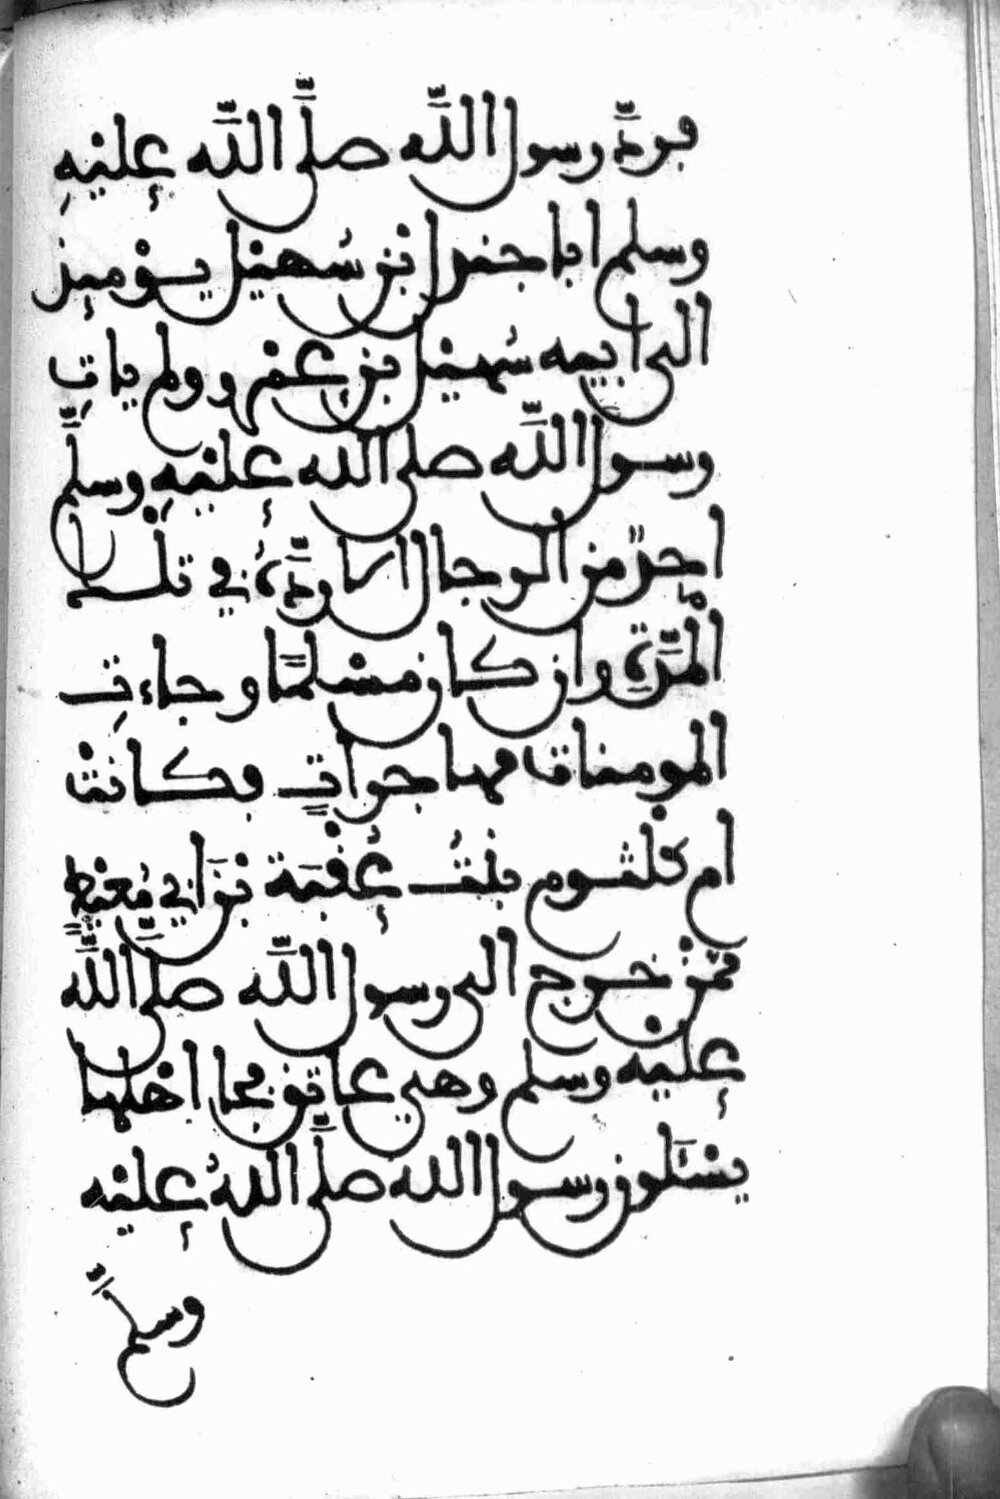 فردّ رسول اللّه صلّى اللّه عليْهِ
وسلم ابا جندل بْن سُهيْل يوْميذ
الى ابيه سُهيْل بْن عمْرو ولم يات
رسول اللّه صلى الله عليْهِ وسلّم
احدٌ من الرجال الا ردّهُ في تلْك
الْمدّةِ وان كان مسْلمًا وجاءتِ
المومنات مهاجراتٍ وكانتْ
ام كلثوم بنْتُ عُقْبَة بْنَ ابي مُعيْطٍ
ممّنْ خرج الى رسول اللّه صلّى اللّه
عليْه وسلم وهي عاتق فجا اهْلها
يسْئَلون رسول الله صلّى اللهُ عليْه
وسلّم